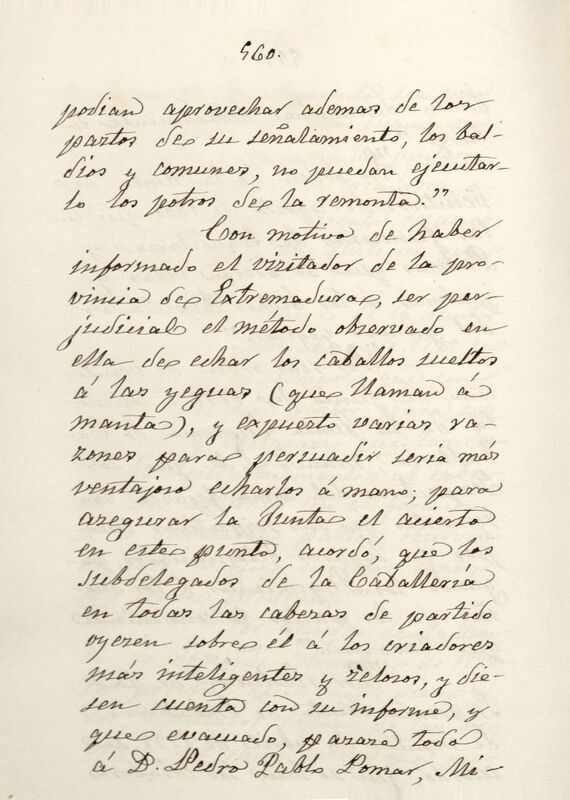 560.
podian aprovechar ademas de los
pastos de su señalamiento, los bal-
dios y comunes, no puedan ejecutar-
lo los potros de la remonta."
Con motivo de haber
informado el vizitador de la pro-
vincia de Extremadura, ser per-
judicial el método observado en
ella de echar los caballos sueltos
á las yeguas (que llaman á
manta), y expuesto varias ra-
zones para persuadir seria más
ventajoso echarlos á mano; para
asegurar la Junta el acierto
en este punto, acordó, que los
subdelegados de la Caballería
en todas las cabezas de partido
oyesen sobre él á los criadores
más inteligentes y zelosos, y die-
sen cuenta con su informe, y
que evacuado, pasase todo
á D. Pedro Pablo Pomar, Mi-